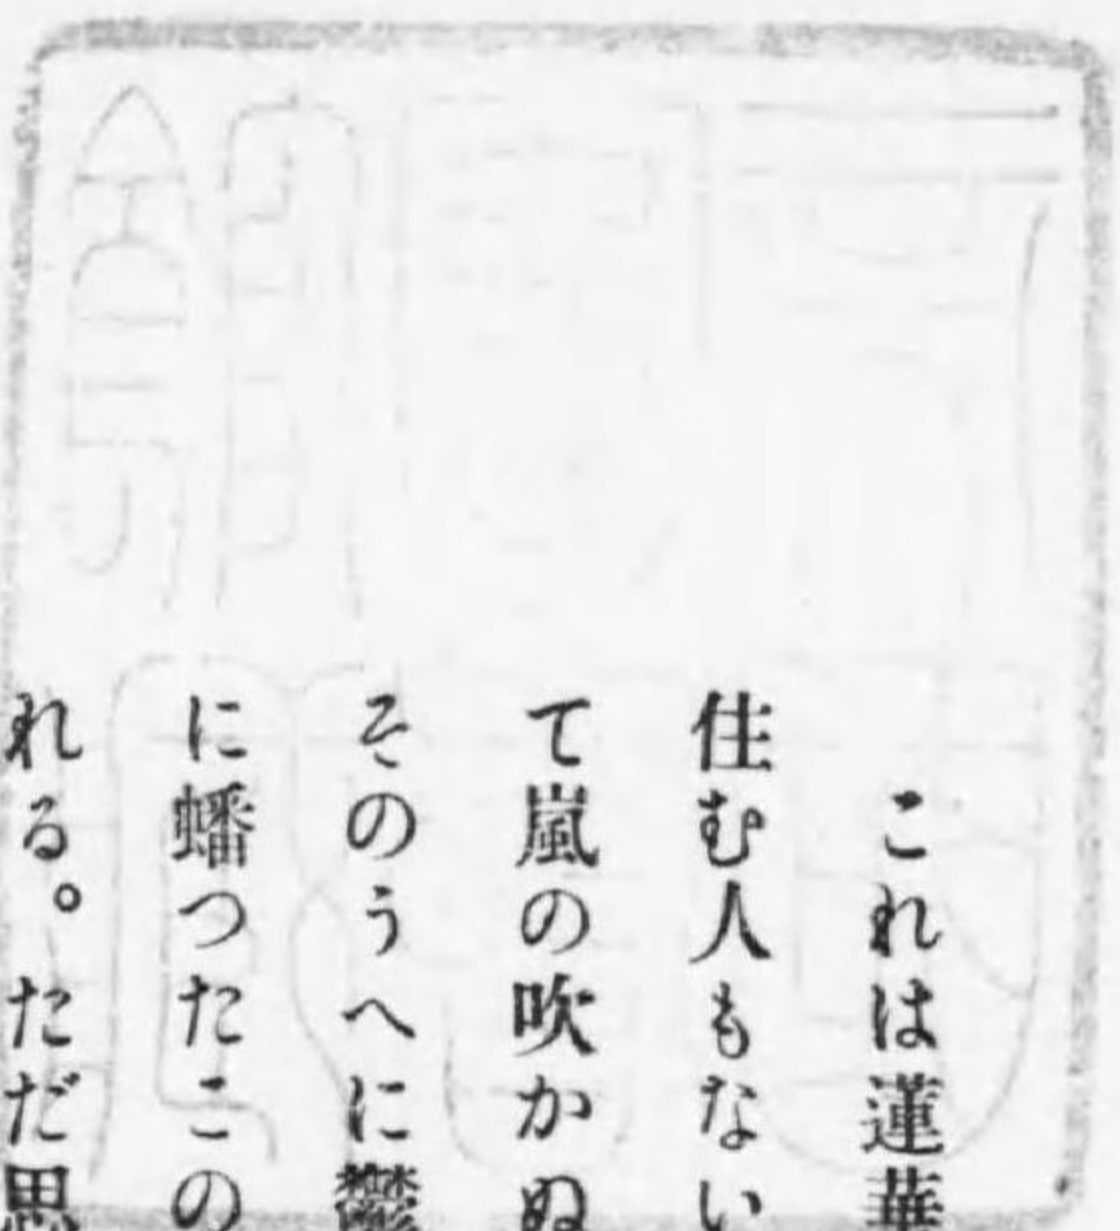 これは蓮華
住む人もない
て嵐の吹かぬ
そのうへに鬱
に蟠つたこの
れる。ただ思